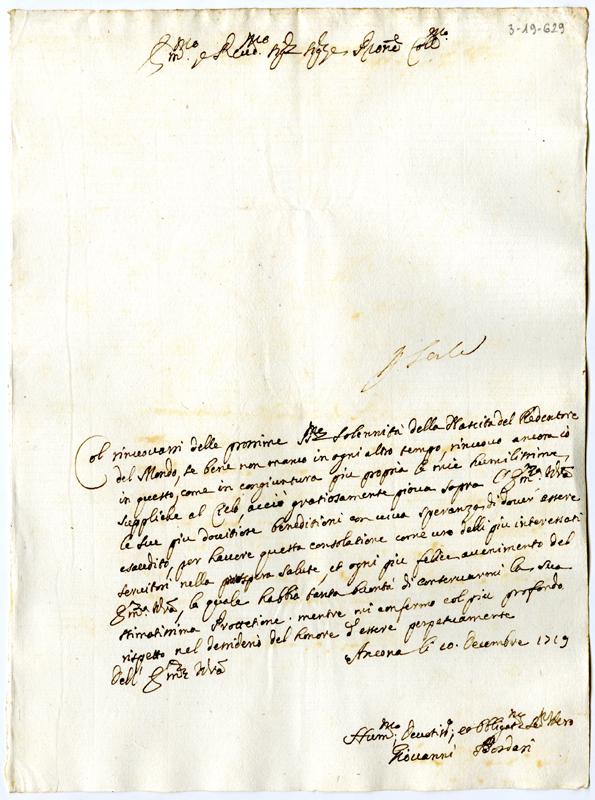 3-19-629
Em.mo e Reu.mo Sig.r Sig.re Prone Coll.mo
Col rinouarsi delle prossime S.me Solennità della Nascita del Redentore
del Mondo, se bene non manco in ogni altro tempo, rinuouo ancora io
in questo, come in congiuntura più propria le mie humilissime
suppliche al Cielo acciò gratiosamente pioua sopra l'Em.za Vrã
le sue più douitiose beneditioni con uiua speranza di douer essere
esaudito, per hauere questa consolatione come uno delli più interessati
seruitori nella prospera salute, et ogni più felice auenimento del
Em.a Vrã, la quale habbia tanta bontà di conseruarmi la sua
stimatissima Protettione. mentre mi confermo col più profondo
rispetto nel desiderio del honore d'essere perpetuamente
Dell' Em.za Vrã
Ancona li 10. Decembre 1719
Hum.mo, Deuotis.o, et Obligat.mo Se.re Vero
Giouanni Bordari